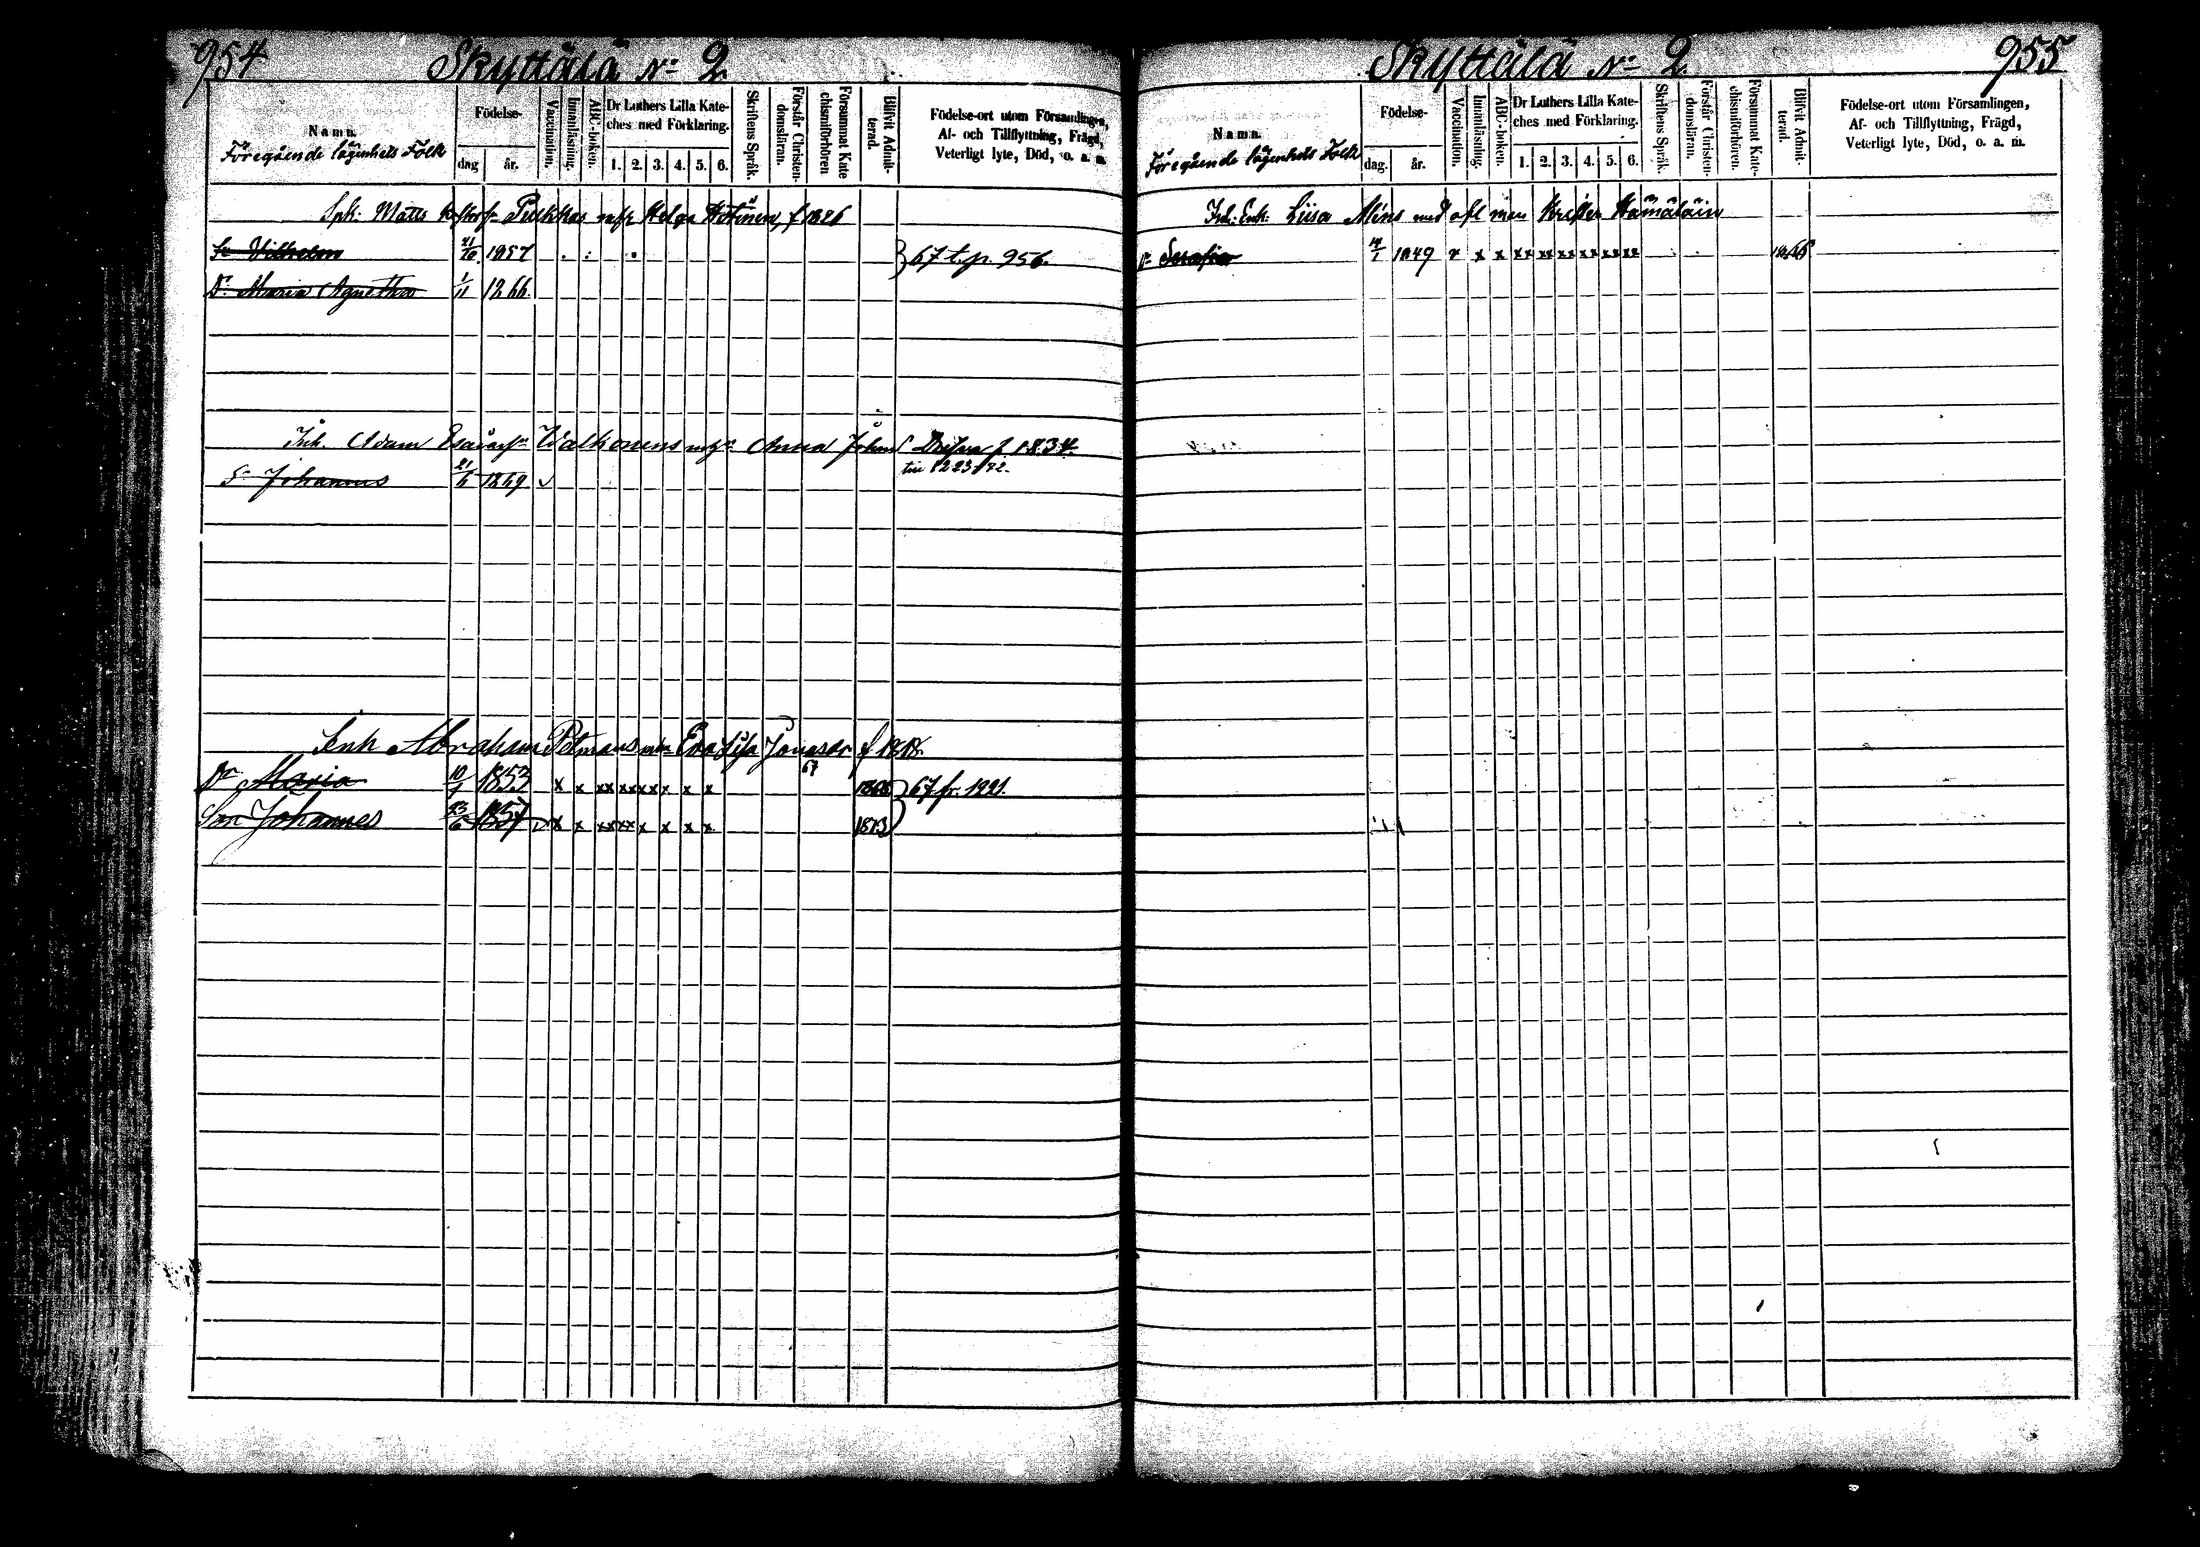 954
Skyttälä No 2.
Namn.
Föregående lägenhets Folk
Födelse-
dag
år.
Vaccination.
Innanläsning.
ABC-boken.
Dr Luthers Lilla Kate-
ches med Förklaring.
1. 2. 3. 4. 5. 6.
Skriftens Språk.
Förstår Christen-
domsläran.
Försummat Kate
chismiförhören
Blifvit Admit-
terad.
Födelse-ort utom Församlingen,
Af- och Tillflyttning, Frägd,
Veterligt lyte, Död, o. a. m.
Matts Pulkkas Helga f. 1826
Sn Vilhelm 21/10 1857
67 t. p. 956.
Dr Maria Agnetha 1/11 1866.
Inh. Adam Walkonens Anna f. 1834
Sn Johannes 21/6 1869. v
Inh Abraham Petmans Eva Lisa Jonasdr f 1818.
67
Dr Maria 10/1 1853 x x xx xx xx x x x 1868 67 fr. 1221.
Son Johannes 23/6 1857 x x xx xx x x x x 1873
955
Skyttälä No 2.
Namn.
Föregående lägenhets Folk
Födelse-
dag.
år.
Vaccination.
Innanläsning.
ABC-boken.
Dr Luthers Lilla Kate-
ches med Förklaring.
1. 2. 3. 4. 5. 6.
Skriftens Språk.
Förstår Christen-
domsläran.
Försummat Kate-
chismiförhören.
Blifvit Admit-
terad.
Födelse-ort utom Församlingen,
Af- och Tillflyttning, Frägd,
Veterligt lyte, Död, o. a. m.
Inh. Enk. Liisa med afl man Krister Hämäläin
Dr Serafia 1849 v x x xx xx xx xx xx xx 1866